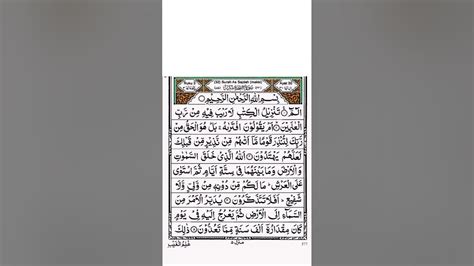 (32) Surah As Sajdah (Makki)
بِسْمِ اللّٰهِ الرَّحْمٰنِ الرَّحِیْمِ
الٓمّٓ ۚ تَنْزِیْلُ الْكِتٰبِ لَا رَیْبَ فِیْهِ مِنْ رَّبِّ
الْعٰلَمِیْنَ ؕ اَمْ یَقُوْلُوْنَ افْتَرٰىهُ ۚ بَلْ هُوَ الْحَقُّ مِنْ
رَّبِّكَ لِتُنْذِرَ قَوْمًا مَّاۤ اَتٰىهُمْ مِّنْ نَّذِیْرٍ مِّنْ قَبْلِكَ
لَعَلَّهُمْ یَهْتَدُوْنَ اَللّٰهُ الَّذِیْ خَلَقَ السَّمٰوٰتِ
وَ الْاَرْضَ وَ مَا بَیْنَهُمَا فِیْ سِتَّةِ اَیَّامٍ ثُمَّ اسْتَوٰى
عَلَى الْعَرْشِ ؕ مَا لَكُمْ مِّنْ دُوْنِهٖ مِنْ وَّلِیٍّ وَّ لَا
شَفِیْعٍ ؕ اَفَلَا تَتَذَكَّرُوْنَ یُدَبِّرُ الْاَمْرَ مِنَ
السَّمَآءِ اِلَى الْاَرْضِ ثُمَّ یَعْرُجُ اِلَیْهِ فِیْ یَوْمٍ
كَانَ مِقْدَارُهٗۤ اَلْفَ سَنَةٍ مِّمَّا تَعُدُّوْنَ ذٰلِكَ
عٰلِمُ الْغَیْبِ